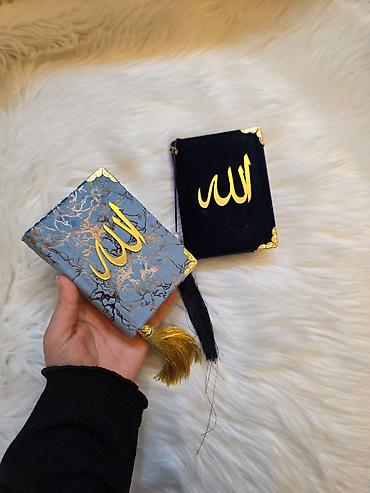 الله
الله